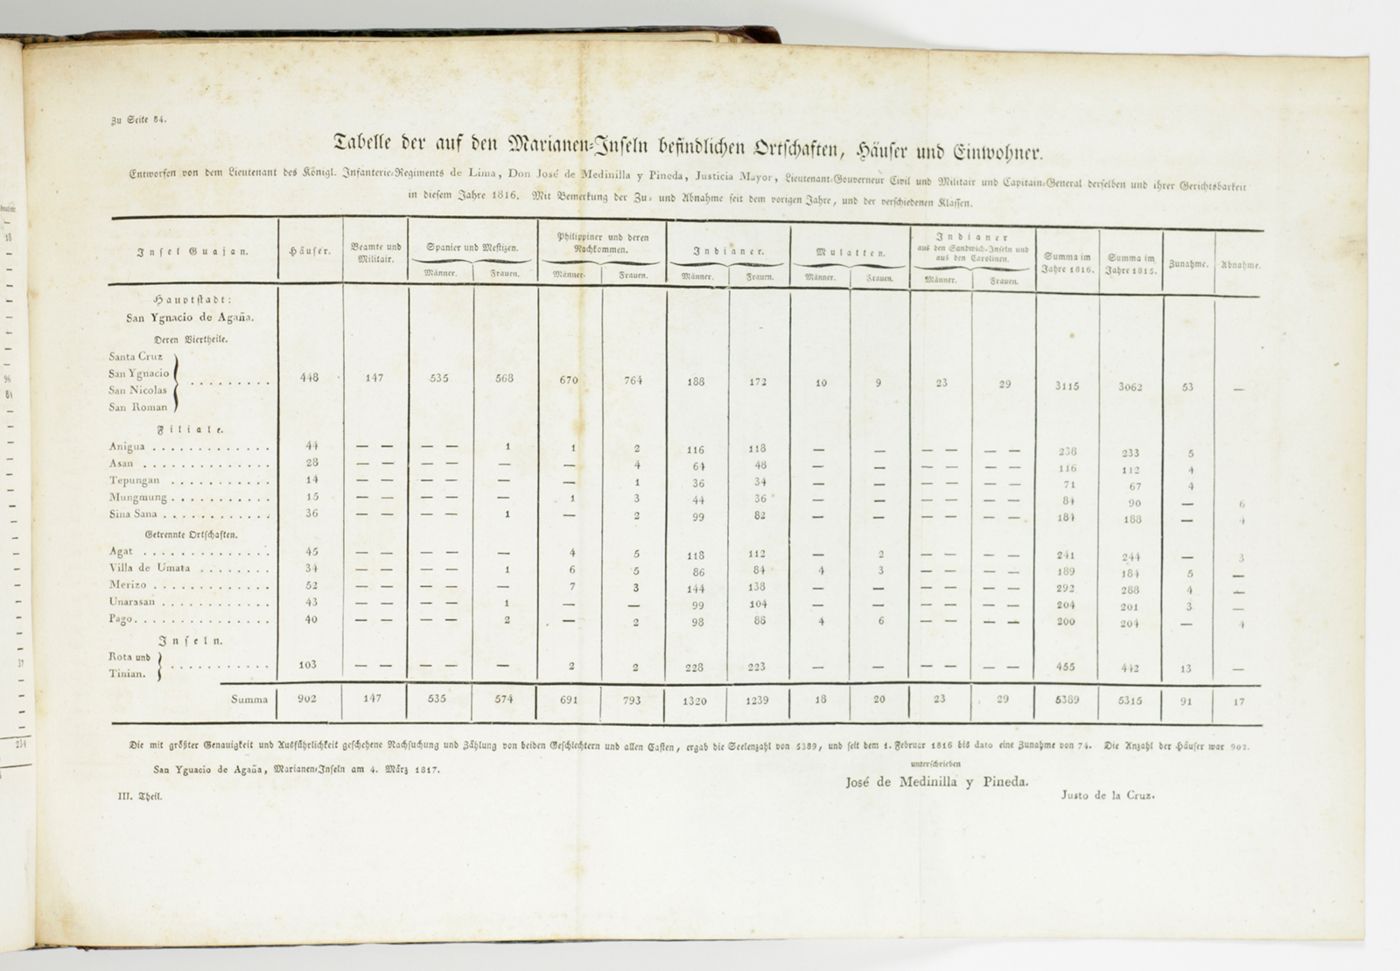 Zu Seite 84.
Tabelle der auf den Marianen-Inseln befindlichen Ortschaften, Häuser und Einwohner.
Entworfen von dem Lieutenant des Königl. Infanterie-Regiments de Lima, Don José de Medinilla y Pineda, Justicia Mayor, Lieutenant-Gouverneur Civil und Militair und Capitain-General derselben und ihrer Gerichtsbarkeit
in diesem Jahre 1816. Mit Bemerkung der Zu- und Abnahme seit dem vorigen Jahre, und der verschiedenen Klassen.
Insel Guajan. Häuser. Beamte und Militair. Spanier und Mestizen. Philippiner und deren Nachkommen. Indianer. Mulatten. Indianer aus den Sandwich-Inseln und aus den Carolinen. Summa im Jahre 1816. Summa im Jahre 1815. Zunahme. Abnahme.
Männer. Frauen. Männer. Frauen. Männer. Frauen. Männer. Frauen. Männer. Frauen.
Hauptstadt:
San Ygnacio de Agaña.
Deren Viertheile.
Santa Cruz
San Ygnacio
San Nicolas
San Roman
. . . . . . . . . 448 147 535 568 670 764 188 172 10 9 23 29 3115 3062 53 —
Filiale.
Anigua . . . . . . . . . . . 44 — — — — 1 1 2 116 118 — — — — — — 238 233 5
Asan . . . . . . . . . . . . 28 — — — — — — 4 64 48 — — — — — — 116 112 4
Tepungan . . . . . . . . . 14 — — — — — — 1 36 34 — — — — — — 71 67 4
Mungmung . . . . . . . . . 15 — — — — — 1 3 44 36 — — — — — — 84 90 — 6
Sina Sana . . . . . . . . . . 36 — — — — 1 — 2 99 82 — — — — — — 184 188 — 4
Getrennte Ortschaften.
Agat . . . . . . . . . . . . 45 — — — — — 4 5 118 112 — 2 — — — — 241 244 — 3
Villa de Umata . . . . . . . 34 — — — — 1 6 5 86 84 4 3 — — — — 189 184 5 —
Merizo . . . . . . . . . . . 52 — — — — — 7 3 144 138 — — — — — — 292 288 4 —
Unarasan . . . . . . . . . . 43 — — — — 1 — — 99 104 — — — — — — 204 201 3 —
Pago . . . . . . . . . . . . 40 — — — — 2 — 2 98 88 4 6 — — — — 200 204 — 4
Inseln.
Rota und
Tinian.
. . . . . . . . . . 103 — — — — — 2 2 228 223 — — — — — — 455 442 13 —
Summa 902 147 535 574 691 793 1320 1239 18 20 23 29 5389 5315 91 17
Die mit größter Genauigkeit und Ausführlichkeit geschehene Nachsuchung und Zählung von beiden Geschlechtern und allen Casten, ergab die Seelenzahl von 5389, und seit dem 1. Februar 1816 bis dato eine Zunahme von 74. Die Anzahl der Häuser war 902.
San Yguacio de Agaña, Marianen-Inseln am 4. März 1817.
unterschrieben
José de Medinilla y Pineda.
Justo de la Cruz.
III. Theil.
18
96
84
37
234